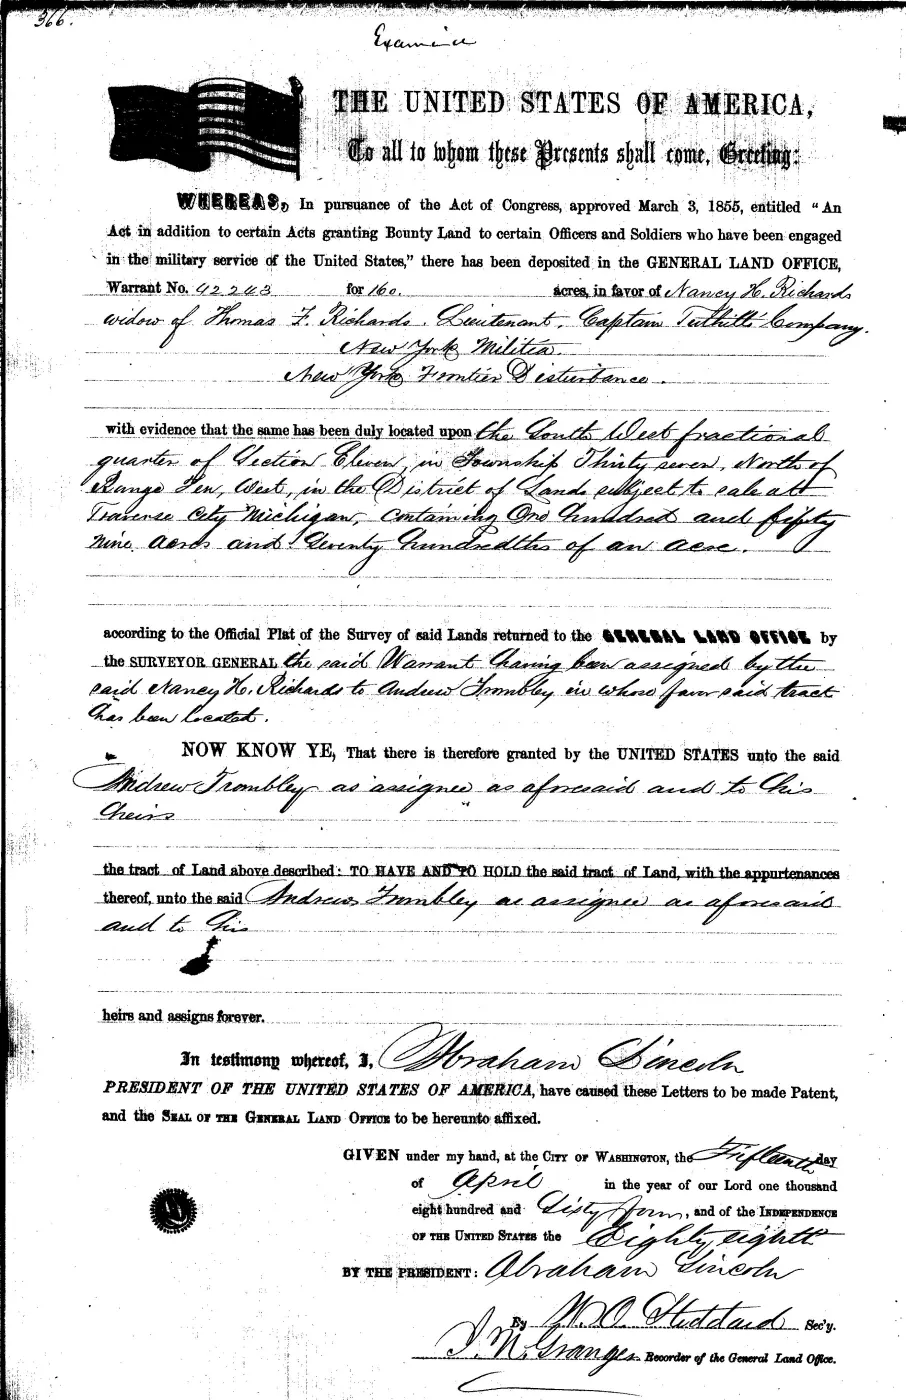 366.
Examine
THE UNITED STATES OF AMERICA,
To all to whom these Presents shall come, Greeting:
WHEREAS, In pursuance of the Act of Congress, approved March 3, 1855, entitled "An
Act in addition to certain Acts granting Bounty Land to certain Officers and Soldiers who have been engaged
in the military service of the United States," there has been deposited in the GENERAL LAND OFFICE,
Warrant No. 42243 for 160. acres, in favor of Nancy H. Richards
widow of Thomas F. Richards. Lieutenant, Captain Tuthill's Company.
New York Militia.
New York Frontier Disturbance.
with evidence that the same has been duly located upon the South West fractional
quarter of Section Eleven, in Township Thirty seven, North of
Range Ten, West, in the District of Lands subject to sale at
Traverse City Michigan, containing One hundred and fifty
nine acres and Seventy hundredths of an acre.
according to the Official Plat of the Survey of said Lands returned to the GENERAL LAND OFFICE by
the SURVEYOR GENERAL the said Warrant having been assigned by the
said Nancy H. Richards to Andrew Trombley in whose favor said tract
has been located.
NOW KNOW YE, That there is therefore granted by the UNITED STATES unto the said
Andrew Trombley as assignee as aforesaid and to his
heirs
the tract of Land above described: TO HAVE AND TO HOLD the said tract of Land, with the appurtenances
thereof, unto the said Andrew Trombley as assignee as aforesaid
and to his
heirs and assigns forever.
In testimony whereof, I, Abraham Lincoln
PRESIDENT OF THE UNITED STATES OF AMERICA, have caused these Letters to be made Patent,
and the SEAL OF THE GENERAL LAND OFFICE to be hereunto affixed.
GIVEN under my hand, at the CITY OF WASHINGTON, the Fifteenth day
of April in the year of our Lord one thousand
eight hundred and Sixty four, and of the INDEPENDENCE
OF THE UNITED STATES the Eighty eighth
BY THE PRESIDENT: Abraham Lincoln
By W. O. Stoddard Sec'y.
J. N. Granger Recorder of the General Land Office.